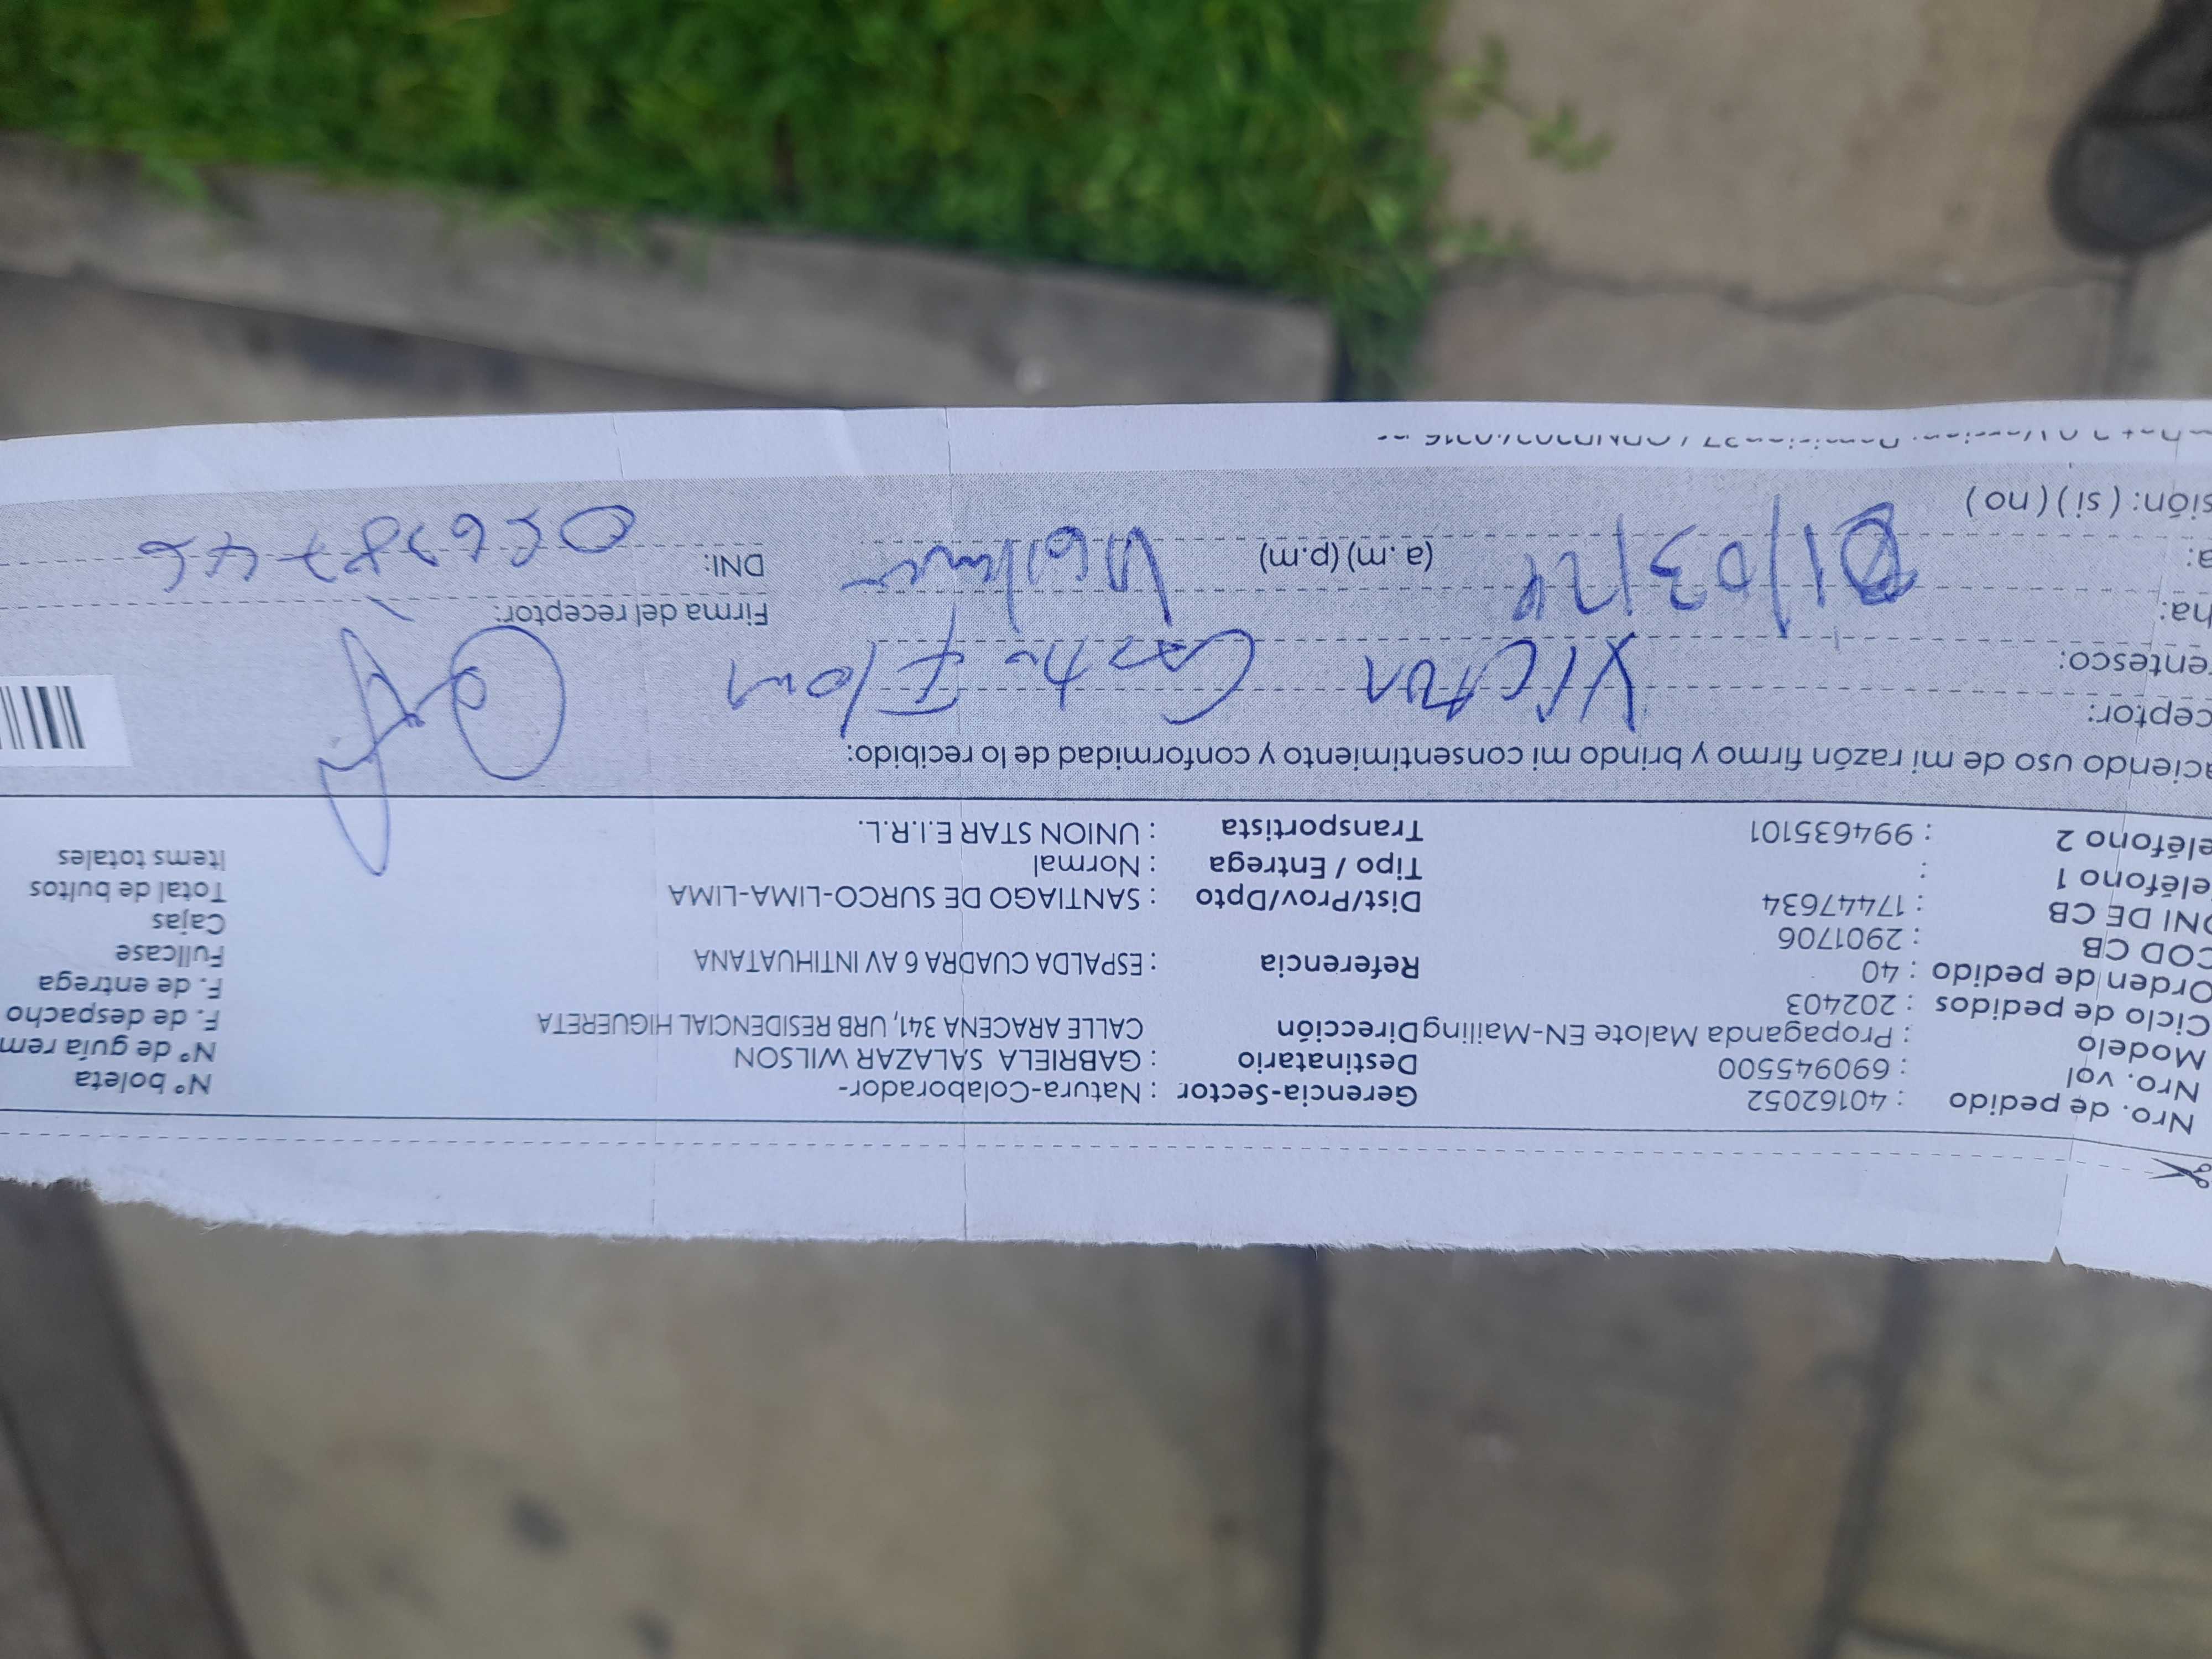 Nro. de pedido : 40162052 Gerencia-Sector : Natura-Colaborador- N° boleta
Nro. vol : 690945500 Destinatario : GABRIELA SALAZAR WILSON N° de guía rem
Modelo : Propaganda Malote EN-Mailing Dirección CALLE ARACENA 341, URB RESIDENCIAL HIGUERETA F. de despacho
Ciclo de pedidos : 202403 F. de entrega
Orden de pedido : 40 Referencia : ESPALDA CUADRA 6 AV INTIHUATANA Fullcase
COD CB : 2901706 Cajas
DNI DE CB : 17447634 Dist/Prov/Dpto : SANTIAGO DE SURCO-LIMA-LIMA Total de bultos
eléfono 1 : Tipo / Entrega : Normal Items totales
eléfono 2 : 994635101 Transportista : UNION STAR E.I.R.L.
aciendo uso de mi razón firmo y brindo mi consentimiento y conformidad de lo recibido:
ceptor: Victor Castro Flores
entesco:
ha: 01/03/24 Firma del receptor:
a: (a.m) (p.m) Vigilancia DNI:
sión: (si) (no)